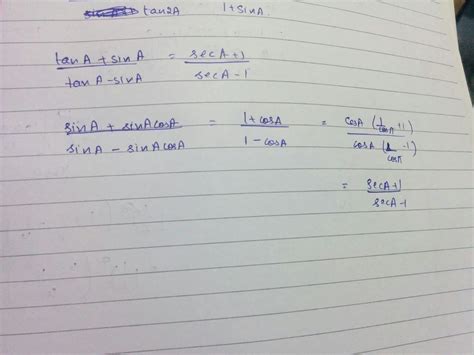 tan2A 1+sinA
tanA + sinA / tanA - sinA = secA + 1 / secA - 1
sinA + sinA cosA / sinA - sinA cosA = 1 + cosA / 1 - cosA = cosA (1/cosA + 1) / cosA (1/cosA - 1)
= secA+1 / secA-1